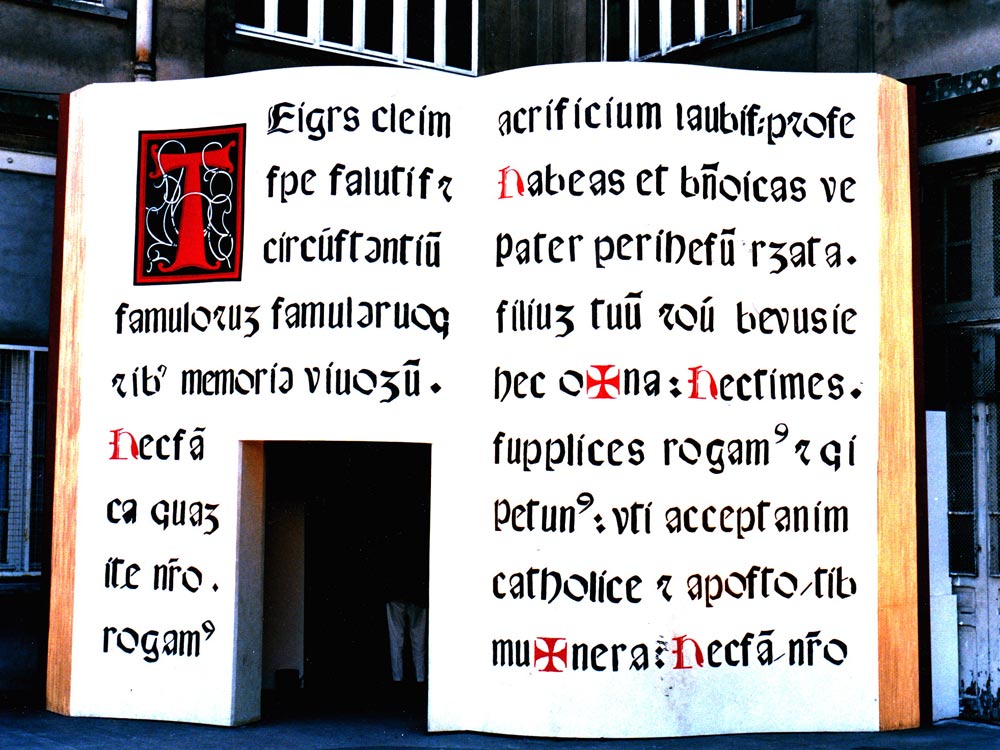 T Eigrs cleim
spe salutis ꝛ
circūstantiū
famuloꝛuʒ famularuoq
ꝛ ib⁹ memoria viuoʒū.
hecsā
ca quaʒ
ite nr̄o.
rogam⁹
acrificium laubis:pꝛofe
habeas et bn̄oicas ve
pater perihesū rʒata.
filiuʒ tuū ꝛoú bevusie
hec o✠na: hectimes.
supplices rogam⁹ ꝛ qi
petun⁹: vti acceptanim
catholice ꝛ aposto/tib
mu✠nera: hecsā/nr̄o